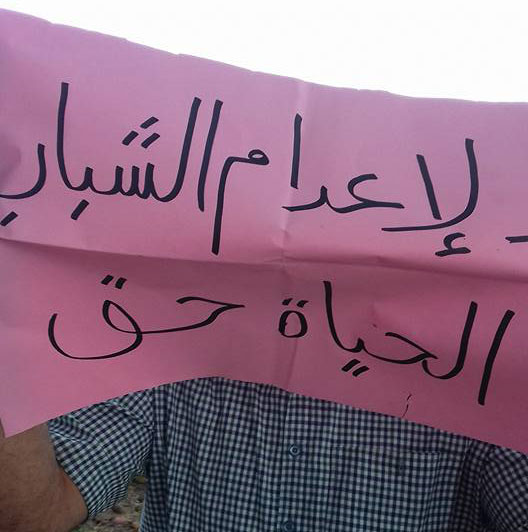 لإعدام الشباب
الحياة حق